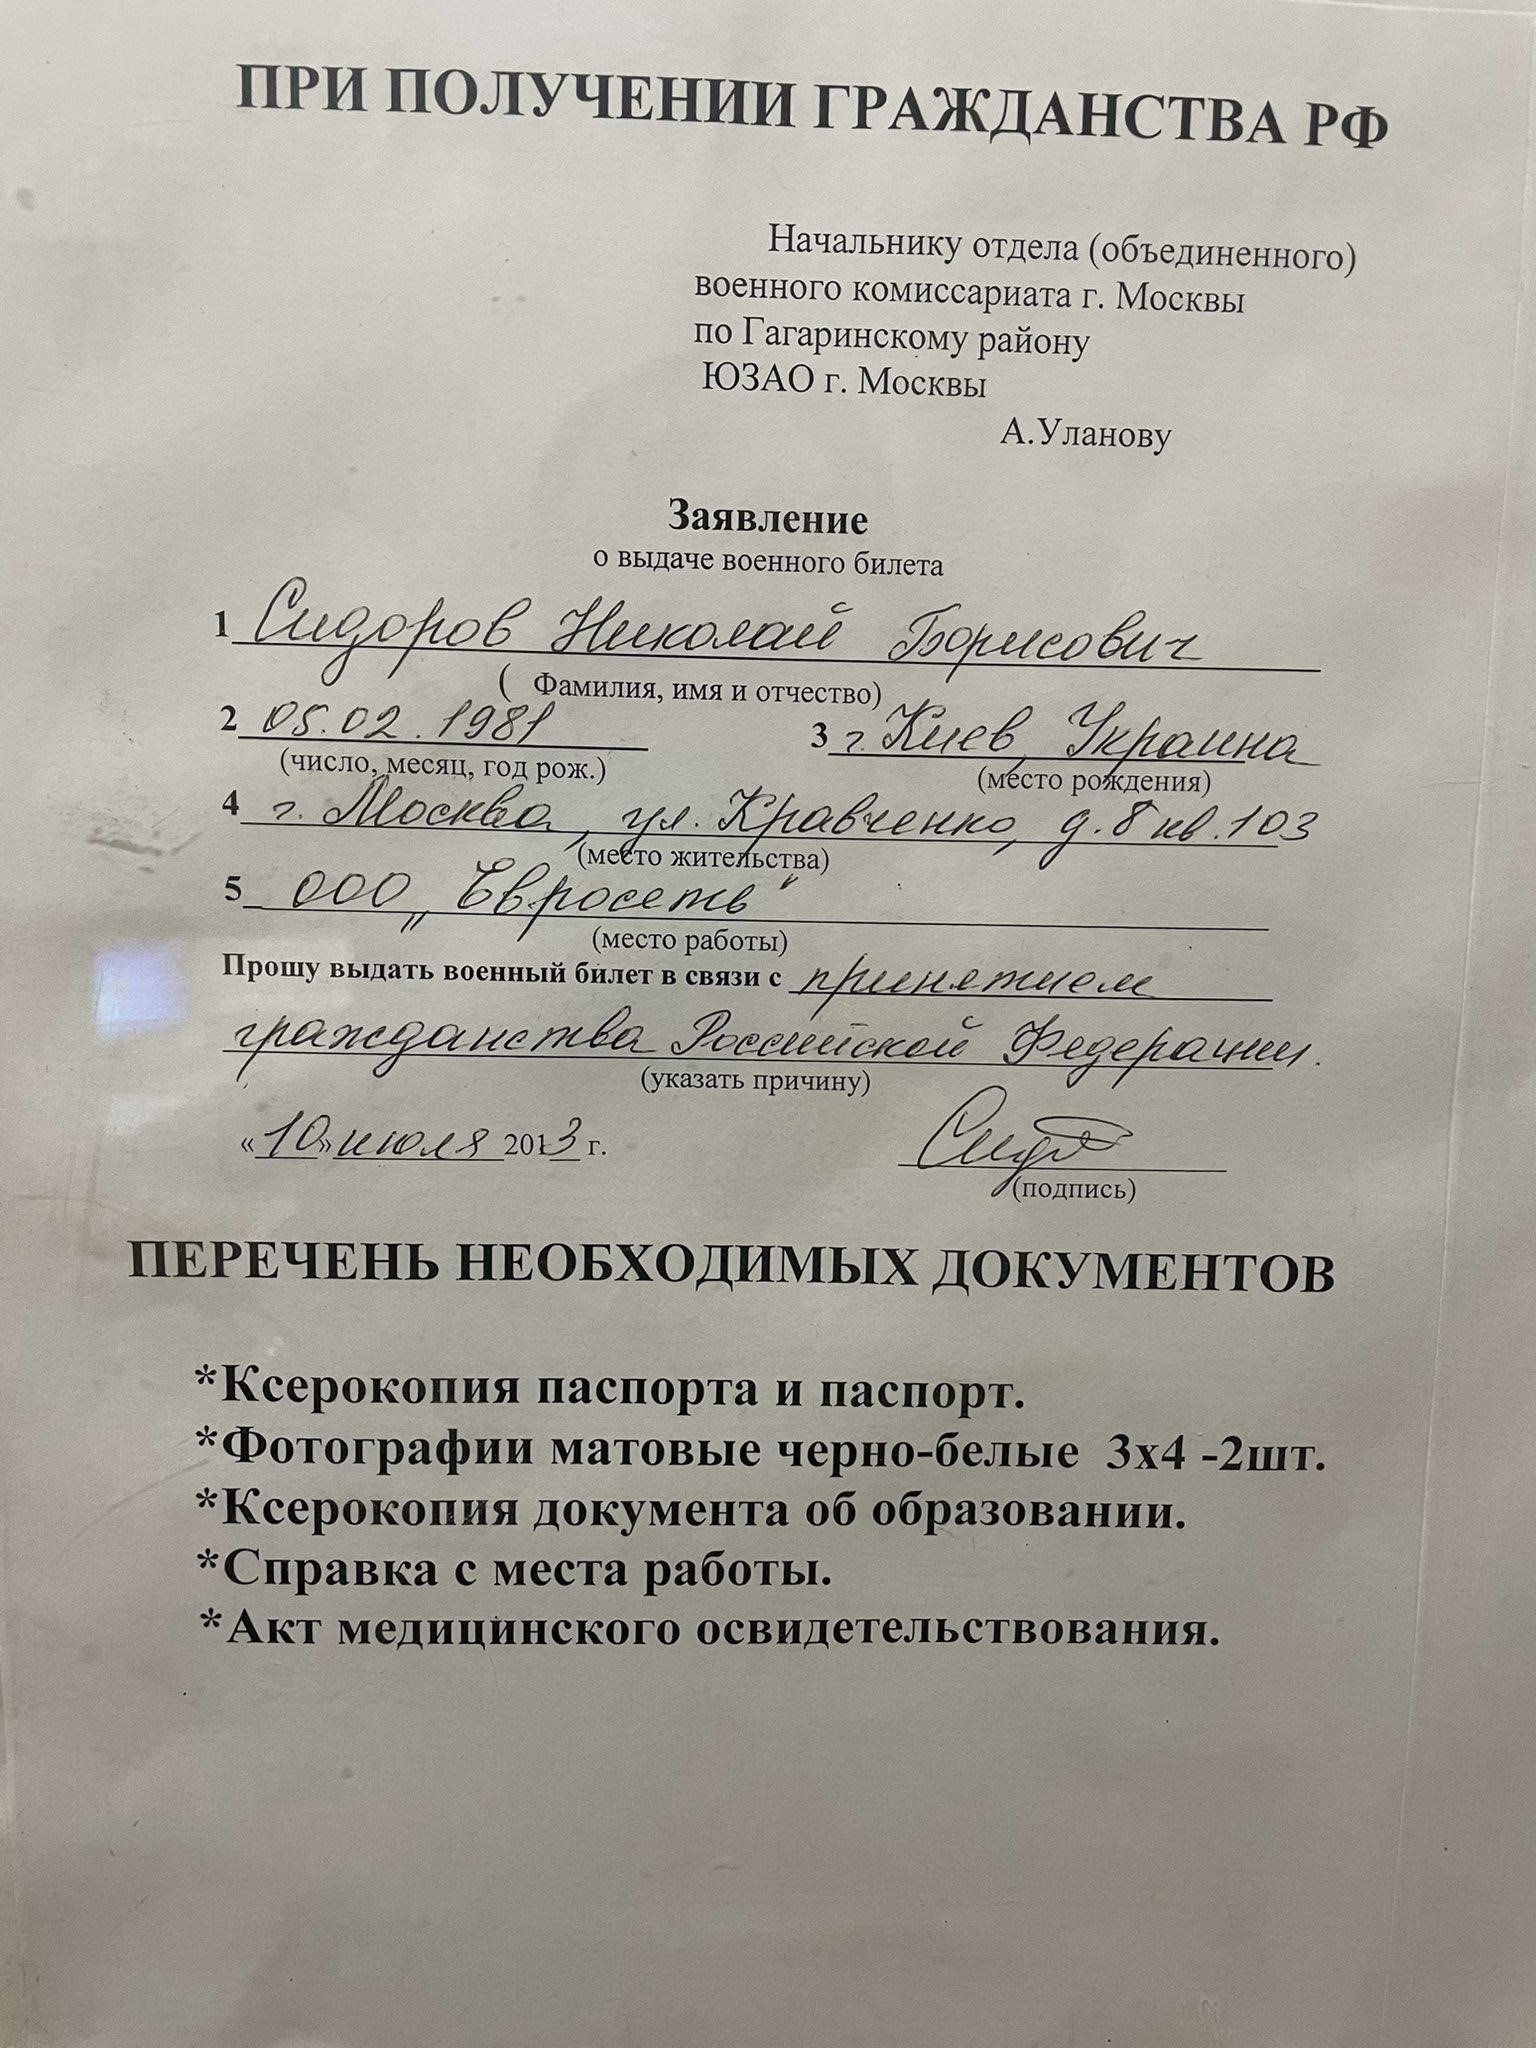 ПРИ ПОЛУЧЕНИИ ГРАЖДАНСТВА РФ
Начальнику отдела (объединенного)
военного комиссариата г. Москвы
по Гагаринскому району
ЮЗАО г. Москвы
А.Уланову
Заявление
о выдаче военного билета
1 Сидоров Николай Борисович
( Фамилия, имя и отчество)
2 05.02.1981 3 г. Киев, Украина
(число, месяц, год рож.) (место рождения)
4 г. Москва, ул. Кравченко, д. 8 кв. 103
(место жительства)
5 ООО „Евросеть"
(место работы)
Прошу выдать военный билет в связи с принятием
гражданства Российской Федерации.
(указать причину)
«10» июля 2013 г. Сид
(подпись)
ПЕРЕЧЕНЬ НЕОБХОДИМЫХ ДОКУМЕНТОВ
*Ксерокопия паспорта и паспорт.
*Фотографии матовые черно-белые 3х4 -2шт.
*Ксерокопия документа об образовании.
*Справка с места работы.
*Акт медицинского освидетельствования.